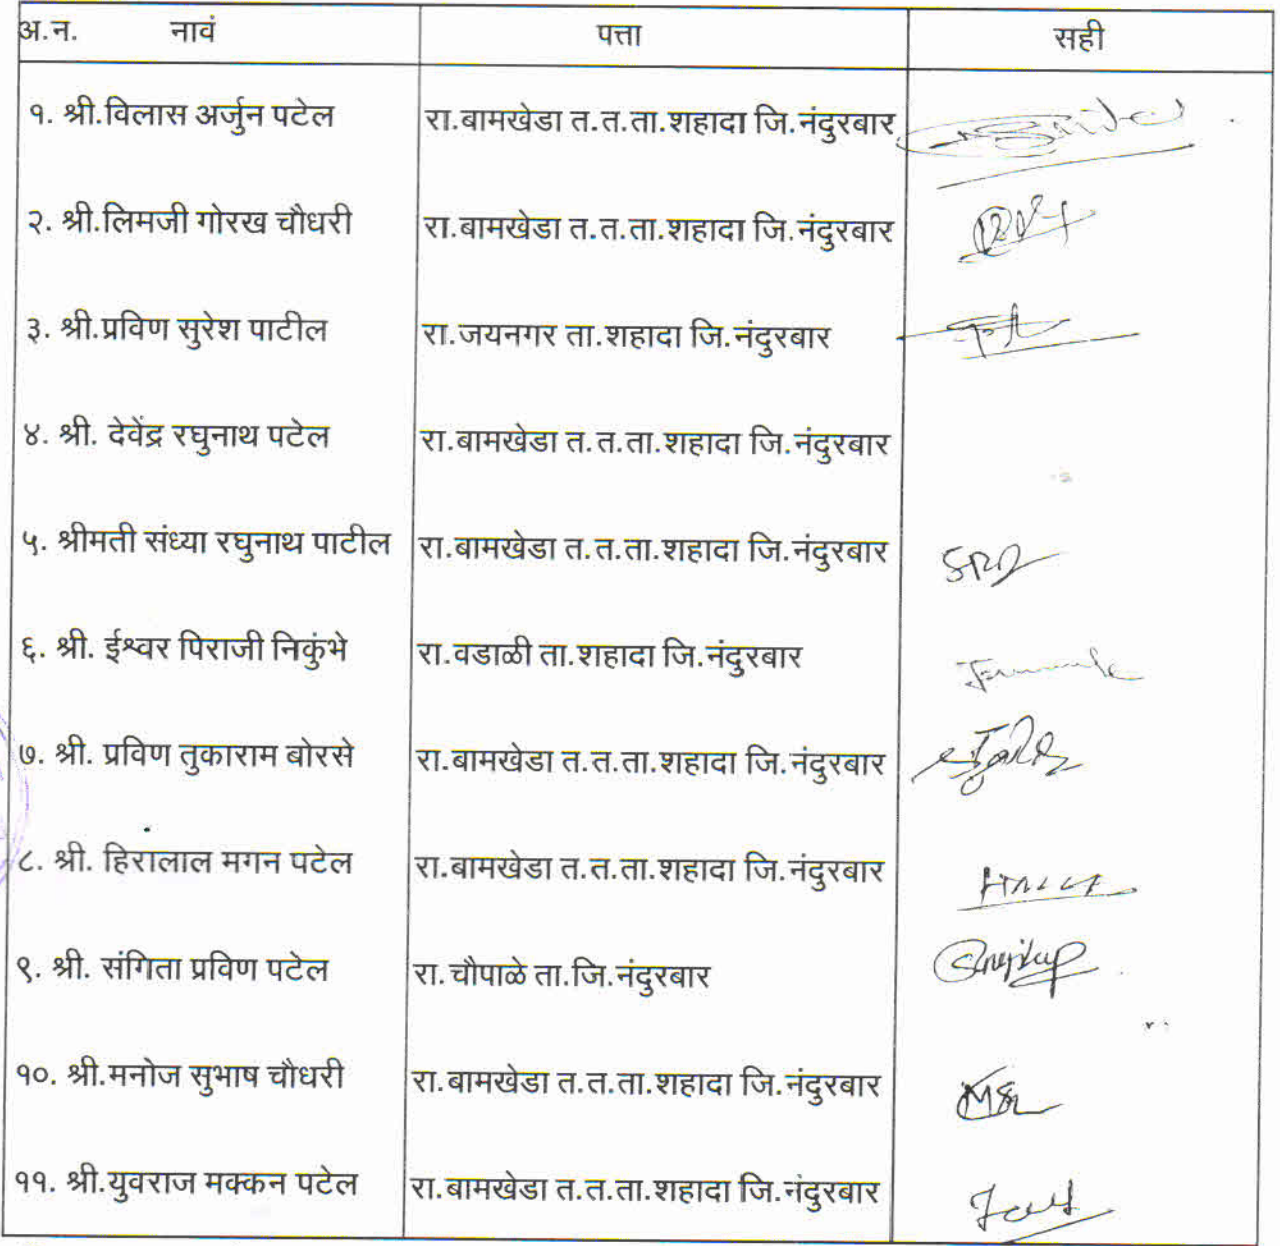 अ.न. नावं पत्ता सही
१. श्री.विलास अर्जुन पटेल रा.बामखेडा त.त.ता.शहादा जि.नंदुरबार
२. श्री.लिमजी गोरख चौधरी रा.बामखेडा त.त.ता.शहादा जि.नंदुरबार
३. श्री.प्रविण सुरेश पाटील रा.जयनगर ता.शहादा जि.नंदुरबार
४. श्री. देवेंद्र रघुनाथ पटेल रा.बामखेडा त.त.ता.शहादा जि.नंदुरबार
५. श्रीमती संध्या रघुनाथ पाटील रा.बामखेडा त.त.ता.शहादा जि.नंदुरबार
६. श्री. ईश्वर पिराजी निकुंभे रा.वडाळी ता.शहादा जि.नंदुरबार
७. श्री. प्रविण तुकाराम बोरसे रा.बामखेडा त.त.ता.शहादा जि.नंदुरबार
८. श्री. हिरालाल मगन पटेल रा.बामखेडा त.त.ता.शहादा जि.नंदुरबार
९. श्री. संगिता प्रविण पटेल रा.चौपाळे ता.जि.नंदुरबार
१०. श्री.मनोज सुभाष चौधरी रा.बामखेडा त.त.ता.शहादा जि.नंदुरबार
११. श्री.युवराज मक्कन पटेल रा.बामखेडा त.त.ता.शहादा जि.नंदुरबार